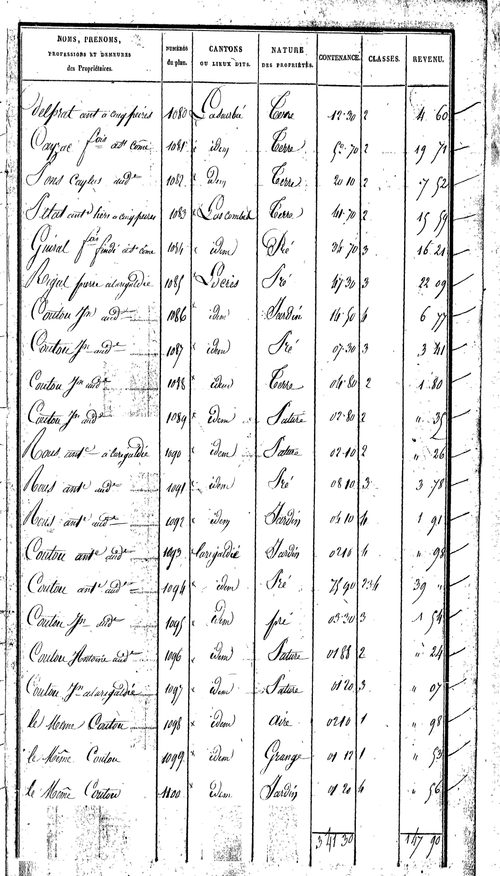 NOMS, PRENOMS, PROFESSIONS ET DEMEURES des Propriétaires. NUMÉROS du plan. CANTONS OU LIEUX DITS. NATURE DES PROPRIÉTÉS. CONTENANCE. CLASSES. REVENU.
Delprat ant à cinq pierres 1080 Terre 12.30 2 4 60
Cayzac fois à st côme 1081 idem Terre 50.70 2 19 71
Pons Caylus aude 1082 idem Terre 20 10 2 7 52
ante à cinq pierres 1083 Las combes Terre 41.70 2 15 59
Guiral fois à st côme 1084 idem Pré 34.70 3 16 21
Rigal pierre alarigaldie 1085 Pré 47.30 3 22 09
Coutou Jn aude 1086 idem Jardin 14.50 4 6 77
Coutou Jn aude 1087 idem Pré 07.30 3 3 41
Coutou Jn aude 1088 idem Terre 04.80 2 1 80
Coutou Jn aude 1089 idem Pature 02.80 2 " 35
Rous ante à larigaldie 1090 idem Pature 02.10 2 " 26
Rous ante aude 1091 idem Pré 08 10 3 3 78
Rous ante aude 1092 idem Jardin 04 10 4 1 91
Coutou ante aude 1093 Larigaldié Jardin 02 10 4 " 98
Coutou ante aude 1094 idem Pré 75 90 3.4 39 "
Coutou Jn aude 1095 idem pré 03.30 3 1 54
Coutou Antoine aude 1096 idem Pature 01 88 2 " 24
Coutou Jn alarigaldié 1097 idem Pature 01 20 3 " 07
le Même Coutou 1098 idem aire 02 10 1 " 98
le Même Coutou 1099 idem Grange 01 12 1 " 53
le Même Coutou 1100 idem Jardin 01 20 4 " 56
3 41 30 147 90